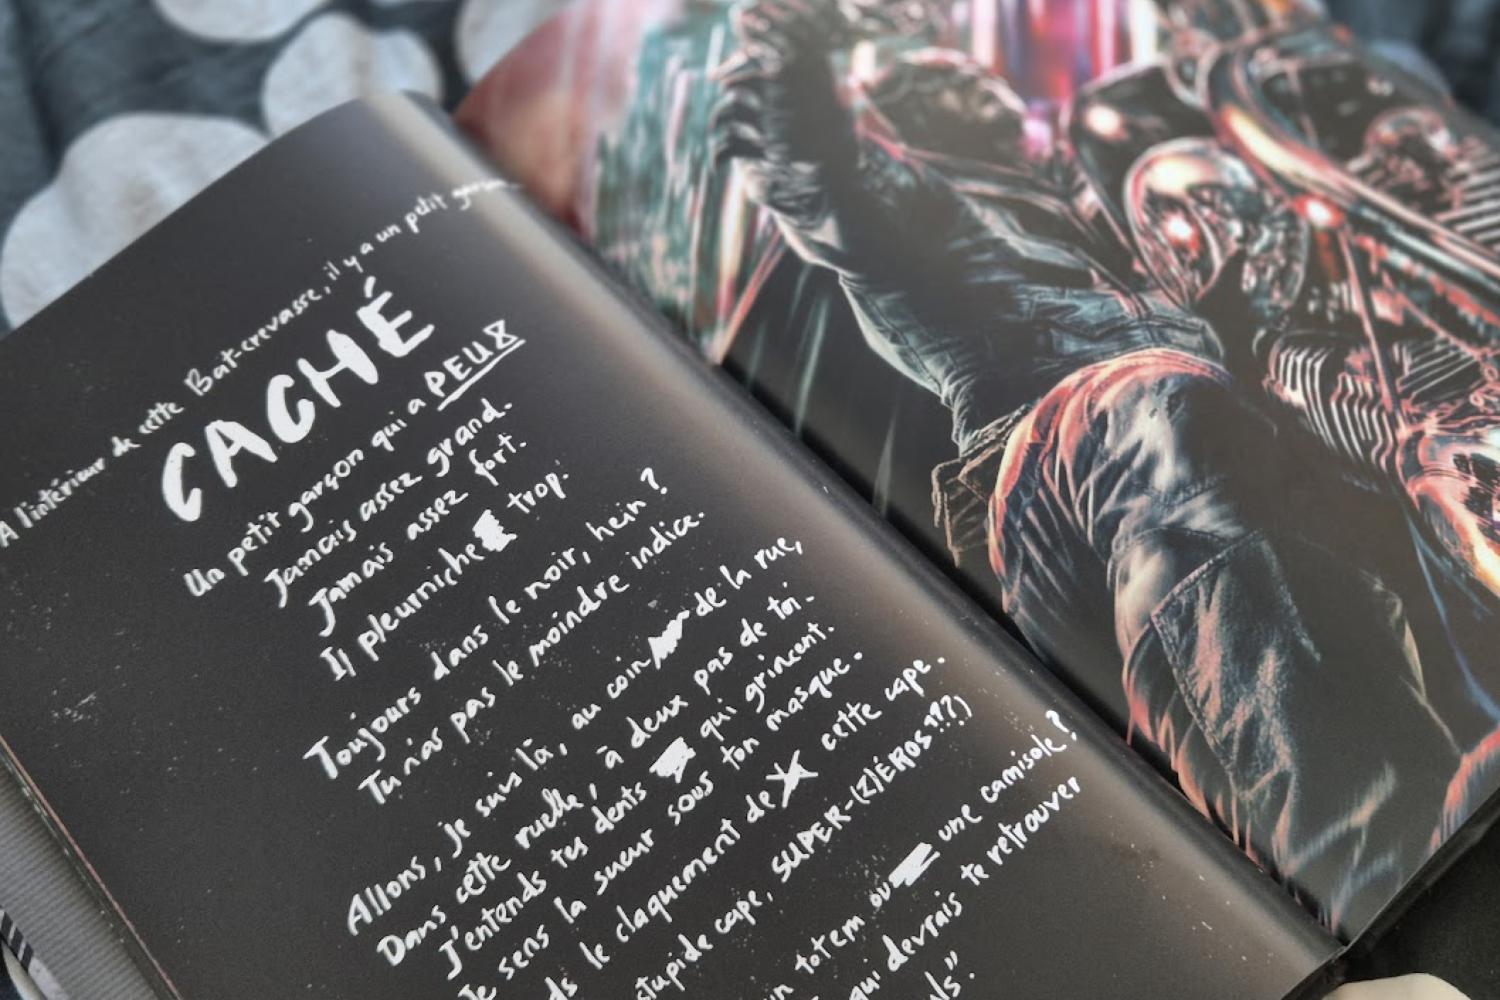 A l'intérieur de cette Bat-crevasse, il y a un petit garçon
CACHÉ
Un petit garçon qui a PEUR
Jamais assez grand.
Jamais assez fort.
Il pleurniche trop.
Toujours dans le noir, hein ?
Tu n'as pas le moindre indice.
Allons, je suis là, au coin de la rue,
Dans cette ruelle, à deux pas de toi.
J'entends tes dents qui grincent.
Je sens la sueur sous ton masque.
le claquement de cette cape.
stupide cape, SUPER-(Z)ÉROS"!?!)
un totem ou une camisole?
qui devrais te retrouver